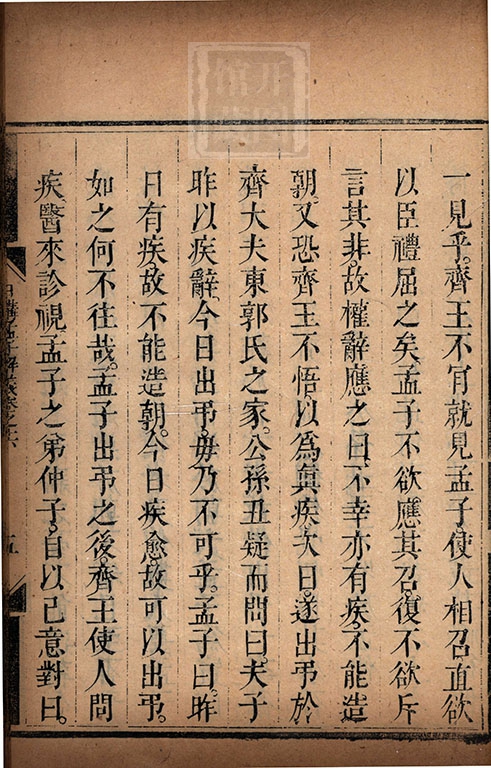 一見乎。齊王不肯就見孟子。使人相召。直欲
以臣禮屈之矣。孟子不欲應其召。復不欲斥
言其非。故權辭應之曰。不幸亦有疾。不能造
朝。又恐齊王不悟。以爲眞疾。次日。遂出弔於
齊大夫東郭氏之家。公孫丑疑而問曰。夫子
昨以疾辭。今日出弔。毋乃不可乎。孟子曰。昨
日有疾。故不能造朝。今日疾愈。故可以出弔。
如之何不往哉。孟子出弔之後。齊王使人問
疾。醫來診視。孟子之弟仲子。自以己意對曰。
日講四書解義卷之十六
五